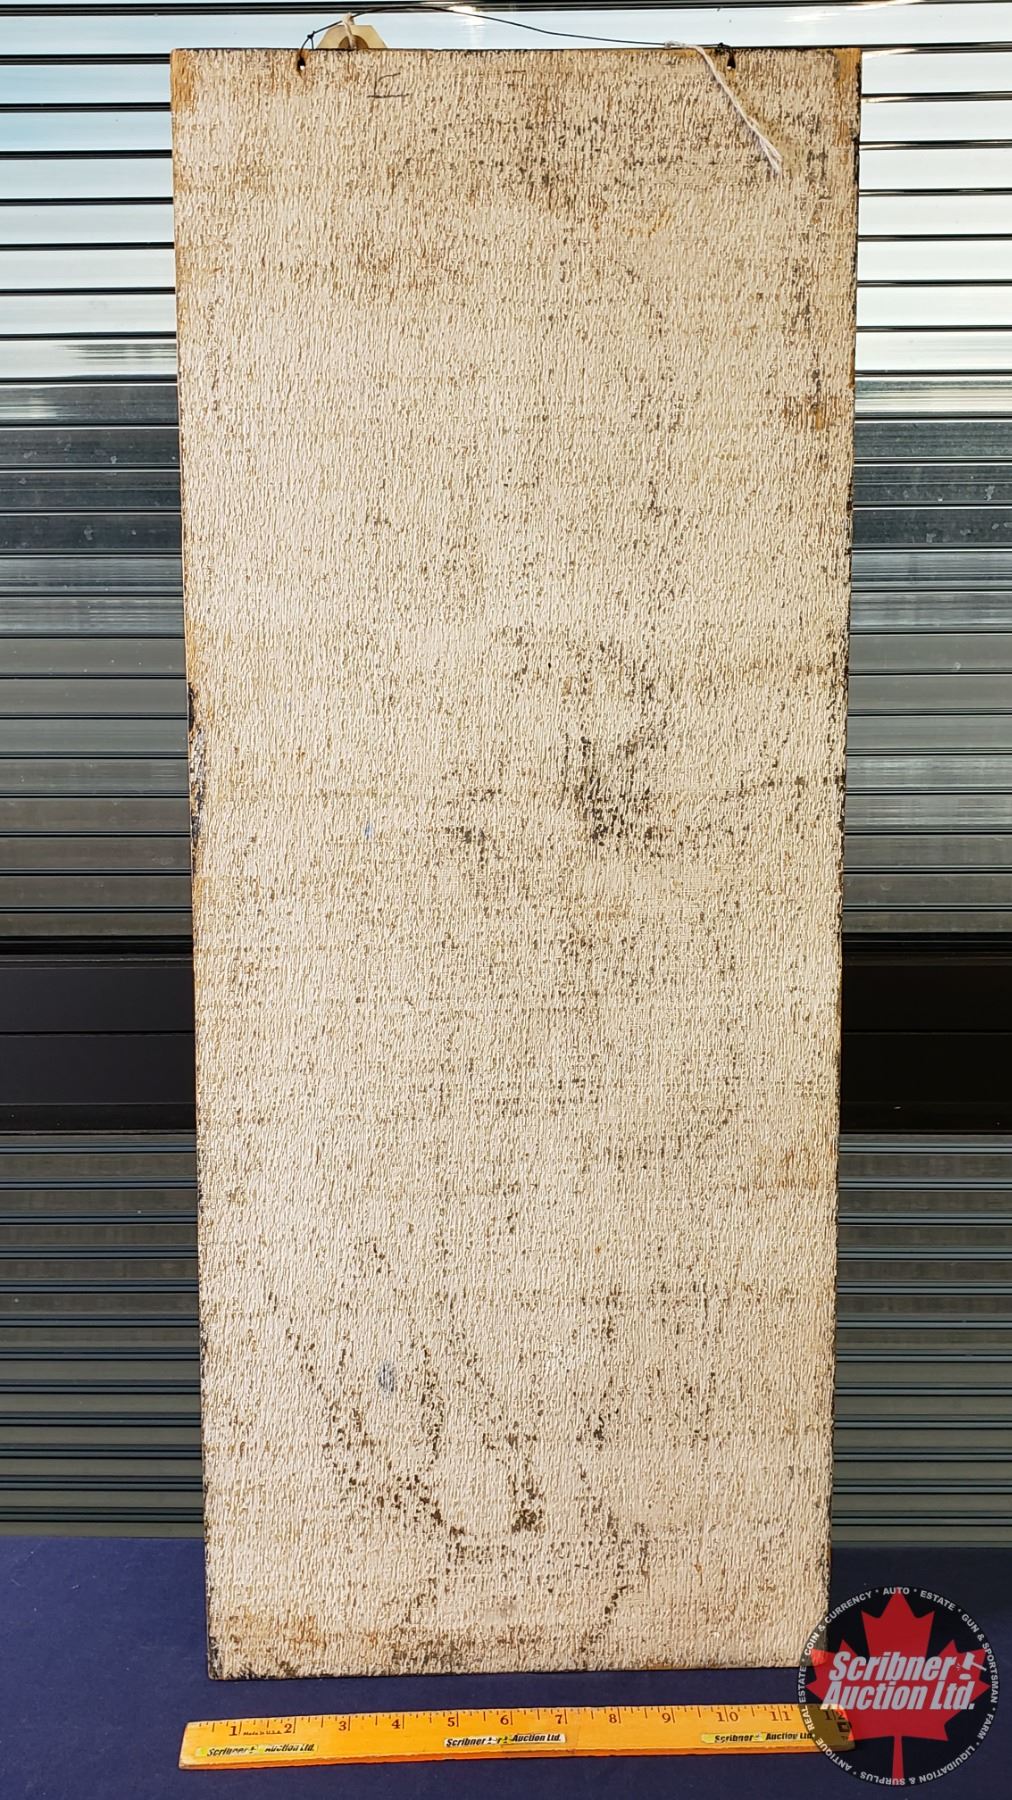 1 Made in U.S.A. 2 3 4 5 6 7 8 9 10 11 12
Scribner Auction Ltd. Scribner Auction Ltd. Scribner Auction Ltd.
REAL ESTATE • COIN & CURRENCY • AUTO • ESTATE • GUN & SPORTSMAN • FARM • LIQUIDATION & SURPLUS • ANTIQUE •
Scribner
Auction Ltd.